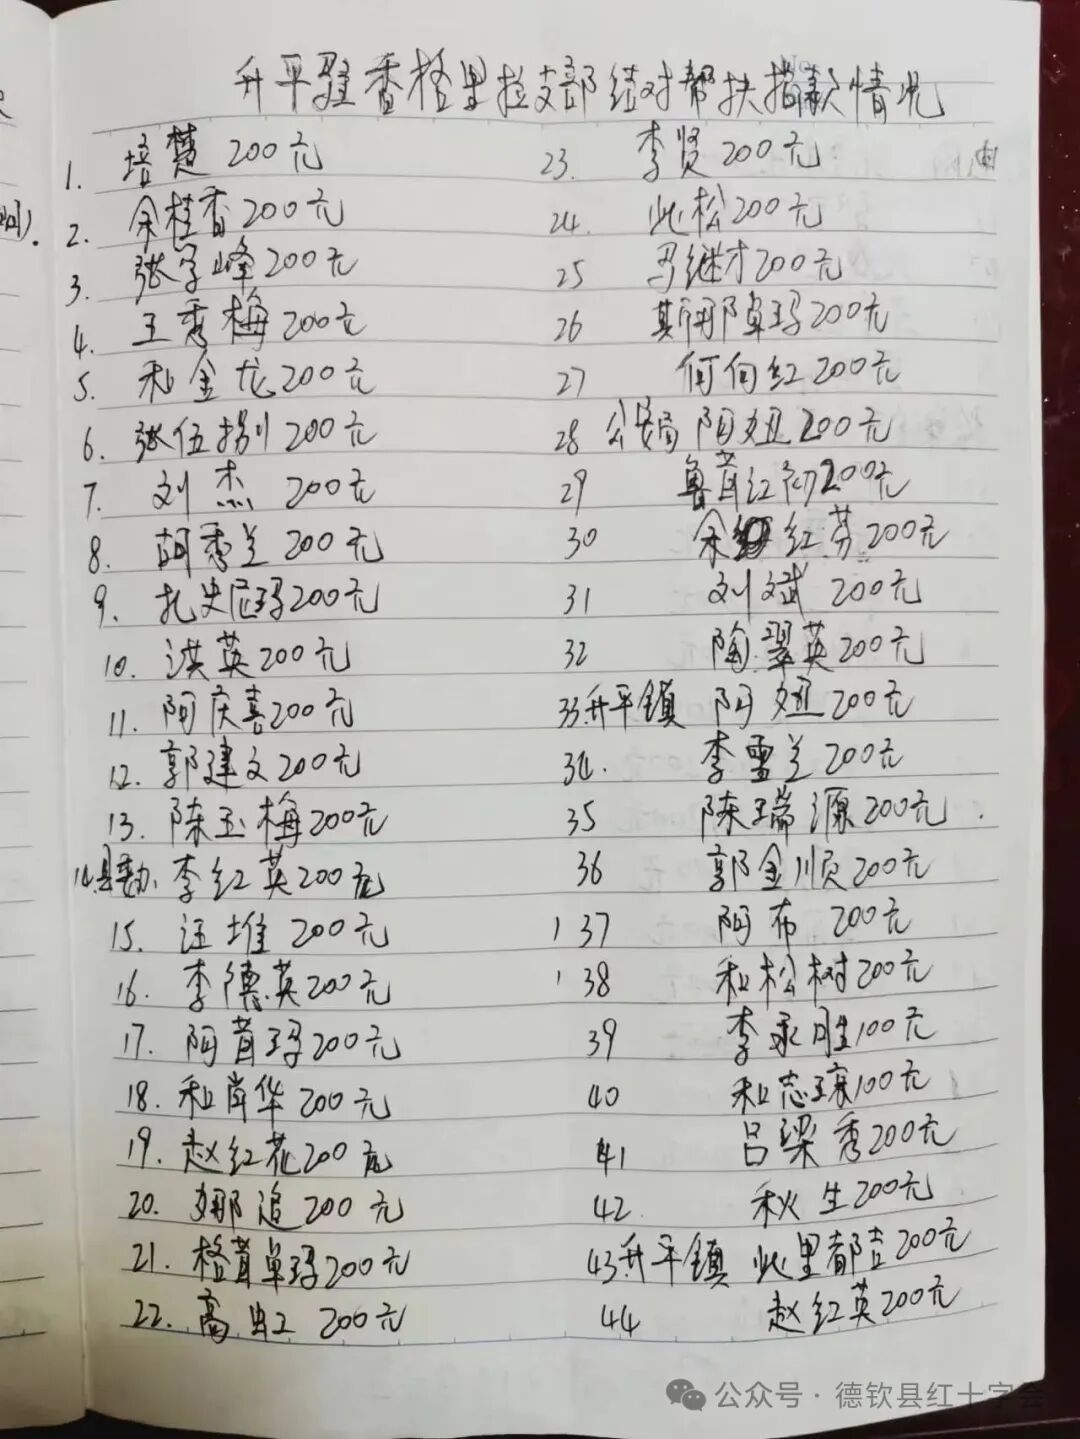 升平驻香格里拉支部结对帮扶捐款情况
1. 培楚 200元
2. 余桂香 200元
3. 张学峰 200元
4. 王秀梅 200元
5. 和金龙 200元
6. 张伍 200元
7. 刘杰 200元
8. 胡秀兰 200元
9. 扎史尼玛 200元
10. 洪英 200元
11. 阿庆喜 200元
12. 郭建文 200元
13. 陈玉梅 200元
14. 县委办 李红英 200元
15. 汪堆 200元
16. 李德英 200元
17. 阿茸玛 200元
18. 和尚华 200元
19. 赵红花 200元
20. 娜追 200元
21. 格茸卓玛 200元
22. 高虹 200元
23. 李贤 200元
24. 此松 200元
25 马继才 200元
26 斯那卓玛 200元
27 何向红 200元
28 公安局 阿妞 200元
29 鲁茸红初 200元
30 余红芬 200元
31 刘斌 200元
32 陶翠英 200元
33 升平镇 阿妞 200元
34. 李雪兰 200元
35 陈瑞源 200元
36 郭金顺 200元
37 阿布 200元
38 和松树 200元
39 李永胜 100元
40 和志 100元
41 吕梁秀 200元
42 秋生 200元
43 升平镇 此里都吉 200元
44 赵红英 200元
公众号·德钦县红十字会